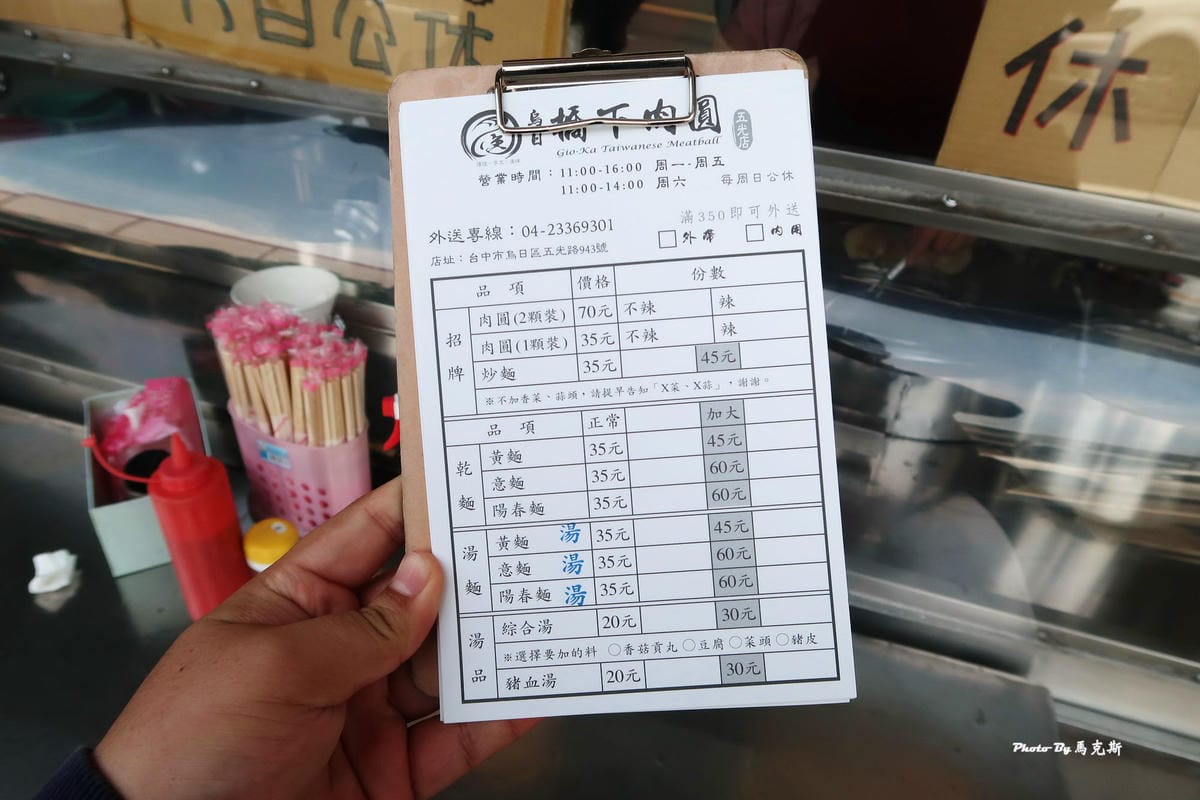 日公休
休
烏日 橋下肉圓 五光店
Gio-Ka Taiwanese Meatball
營業時間：11:00-16:00 周一-周五
11:00-14:00 周六 每周日公休
滿350即可外送
外送專線：04-23369301 □外帶 □內用
店址：台中市烏日區五光路943號
品項 價格 份數
招牌
肉圓(2顆裝) 70元 不辣 辣
肉圓(1顆裝) 35元 不辣 辣
炒麵 35元 45元
※不加香菜、蒜頭，請提早告知「X菜、X蒜」，謝謝。
品項 正常 加大
乾麵
黃麵 35元 45元
意麵 35元 60元
陽春麵 35元 60元
湯麵
黃麵 湯 35元 45元
意麵 湯 35元 60元
陽春麵 湯 35元 60元
湯品
綜合湯 20元 30元
※選擇要加的料 ○香菇貢丸 ○豆腐 ○菜頭 ○豬皮
豬血湯 20元 30元
Photo By 馬克斯